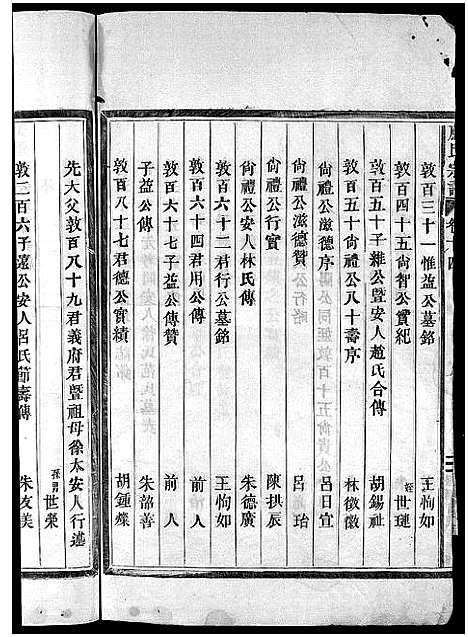 氏宗譜 卷十四
敦百三十一惟益公墓銘 王恂如
敦百四十五尙智公實紀 姪世璉
敦百五十子雅公暨安人趙氏合傳 胡錫祉
敦百五十五尙禮公八十壽序 林徵徽
尙禮公滋德序 呂日宣
尙禮公滋德贊 呂治
尙禮公行實 陳拱辰
尙禮公安人林氏傳 朱德廣
敦百六十二君行公墓銘 王恂如
敦百六十四君用公傳 前人
敦百六十七子益公傳贊 前人
子益公傳 朱韶善
敦百八十七君德公實績 胡鍾燦
先大父敦百八十九君義府君暨祖母徐太安人行述 孫男世榮
敦二百六子遠公安人呂氏節壽傳 朱友美